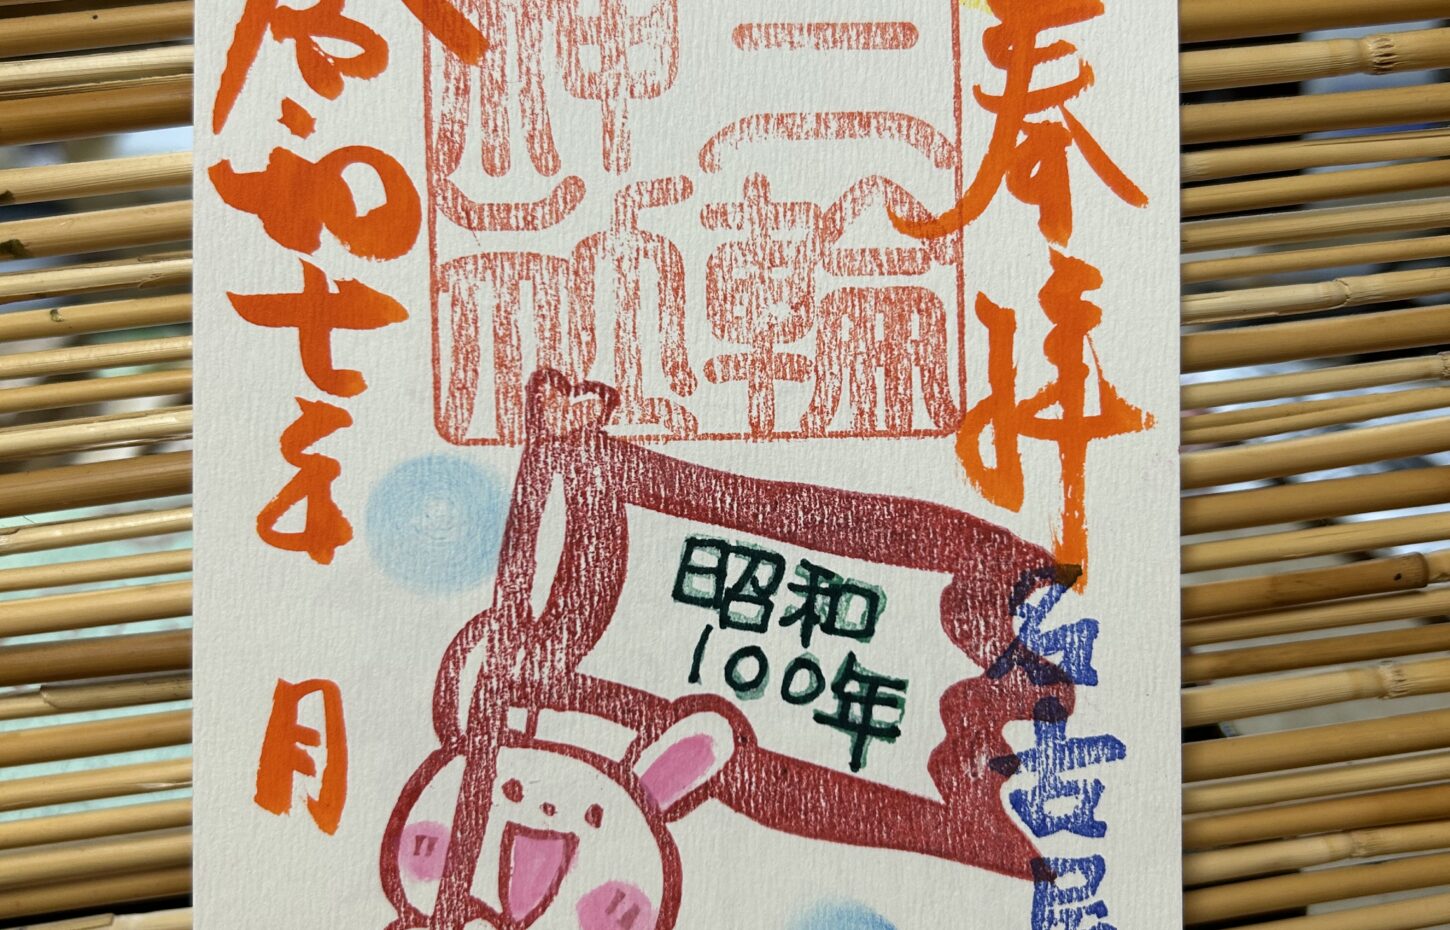 奉拝
名古屋
三輪
神社
昭和
100年
令和七年
月